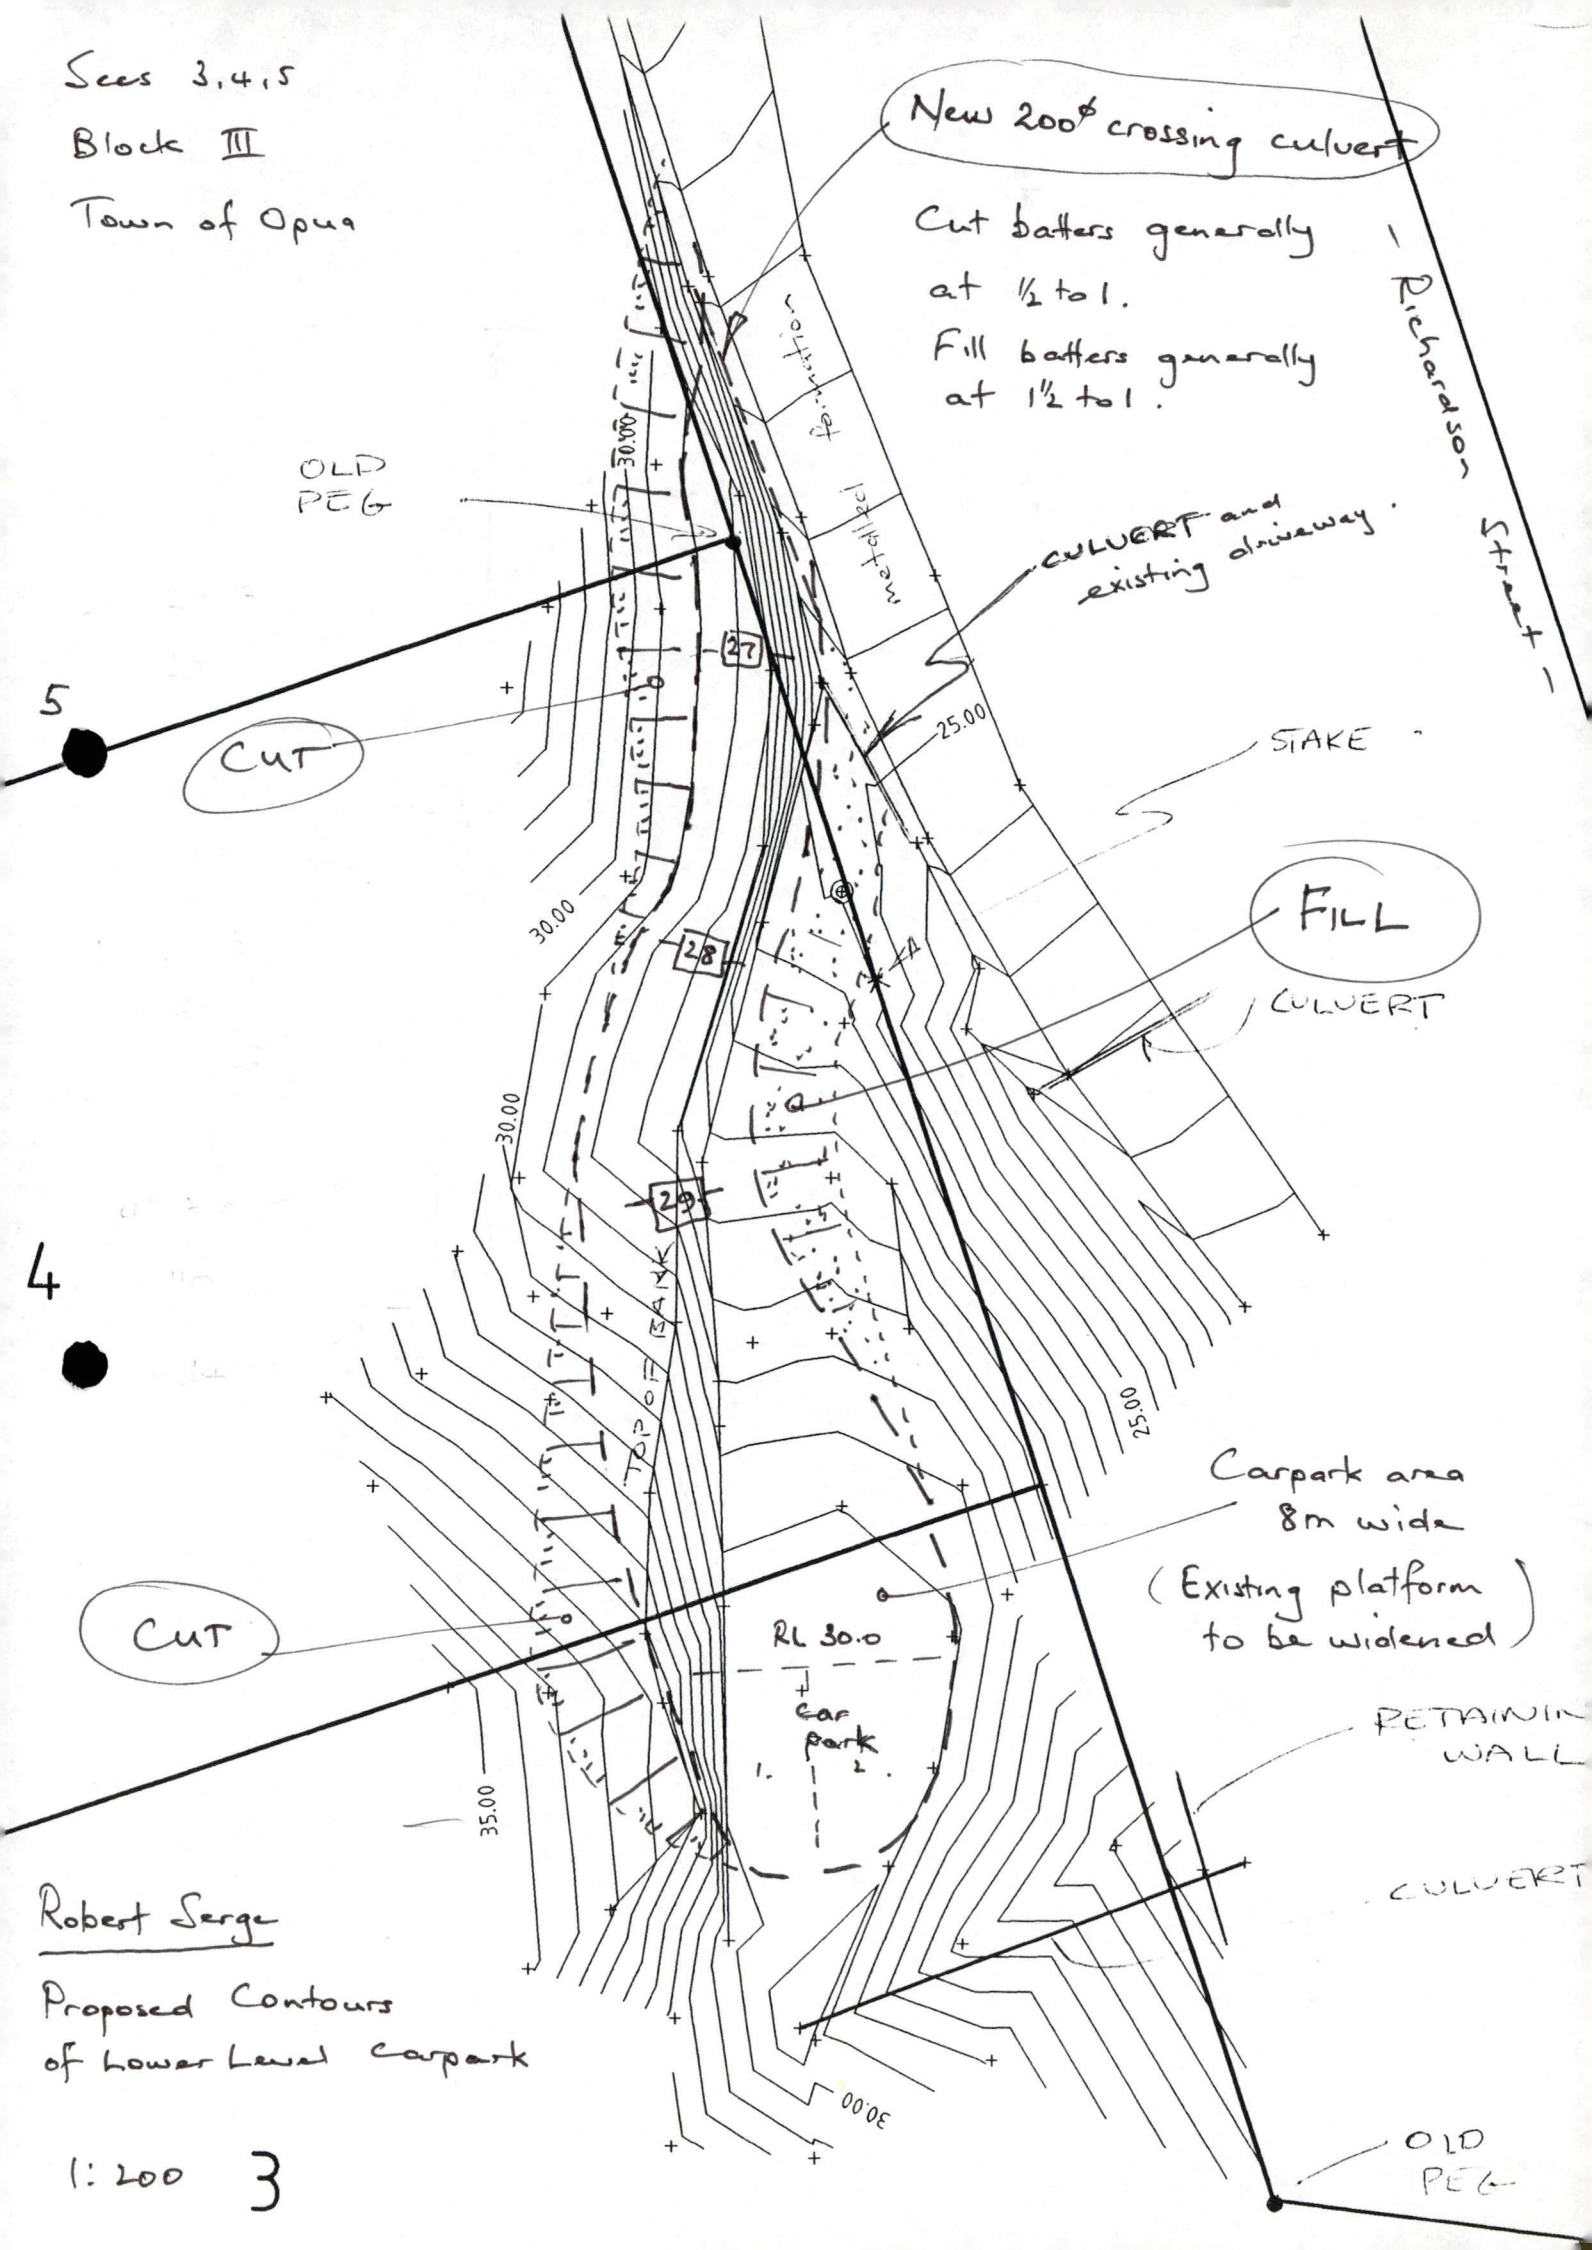 Secs 3,4,5
Block III
Town of Opua
New 200ø crossing culvert
Cut batters generally
at ½ to 1.
Fill batters generally
at 1½ to 1.
- Richardson Street -
metalled formation
30.00
OLD
PEG
CULVERT and
existing driveway.
27
5
CUT
25.00
STAKE
30.00
28
FILL
CULVERT
30.00
29
4
TOP OF BANK
25.00
Carpark area
8m wide
(Existing platform
to be widened)
CUT
RL 30.0
car
park
1. 2.
RETAININ
WALL
35.00
CULVERT
Robert Serge
Proposed Contours
of Lower Level Carpark
30.00
1:200 3
OLD
PEG